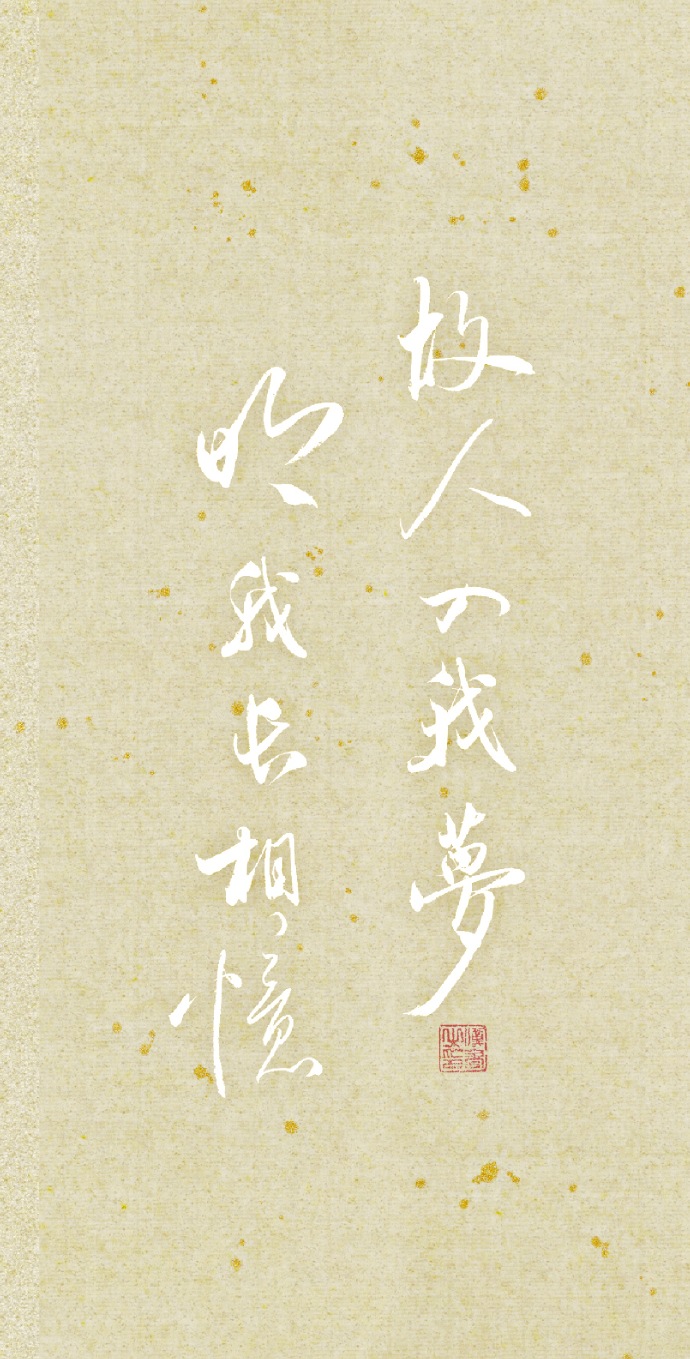 故人入我夢
明我长相憶